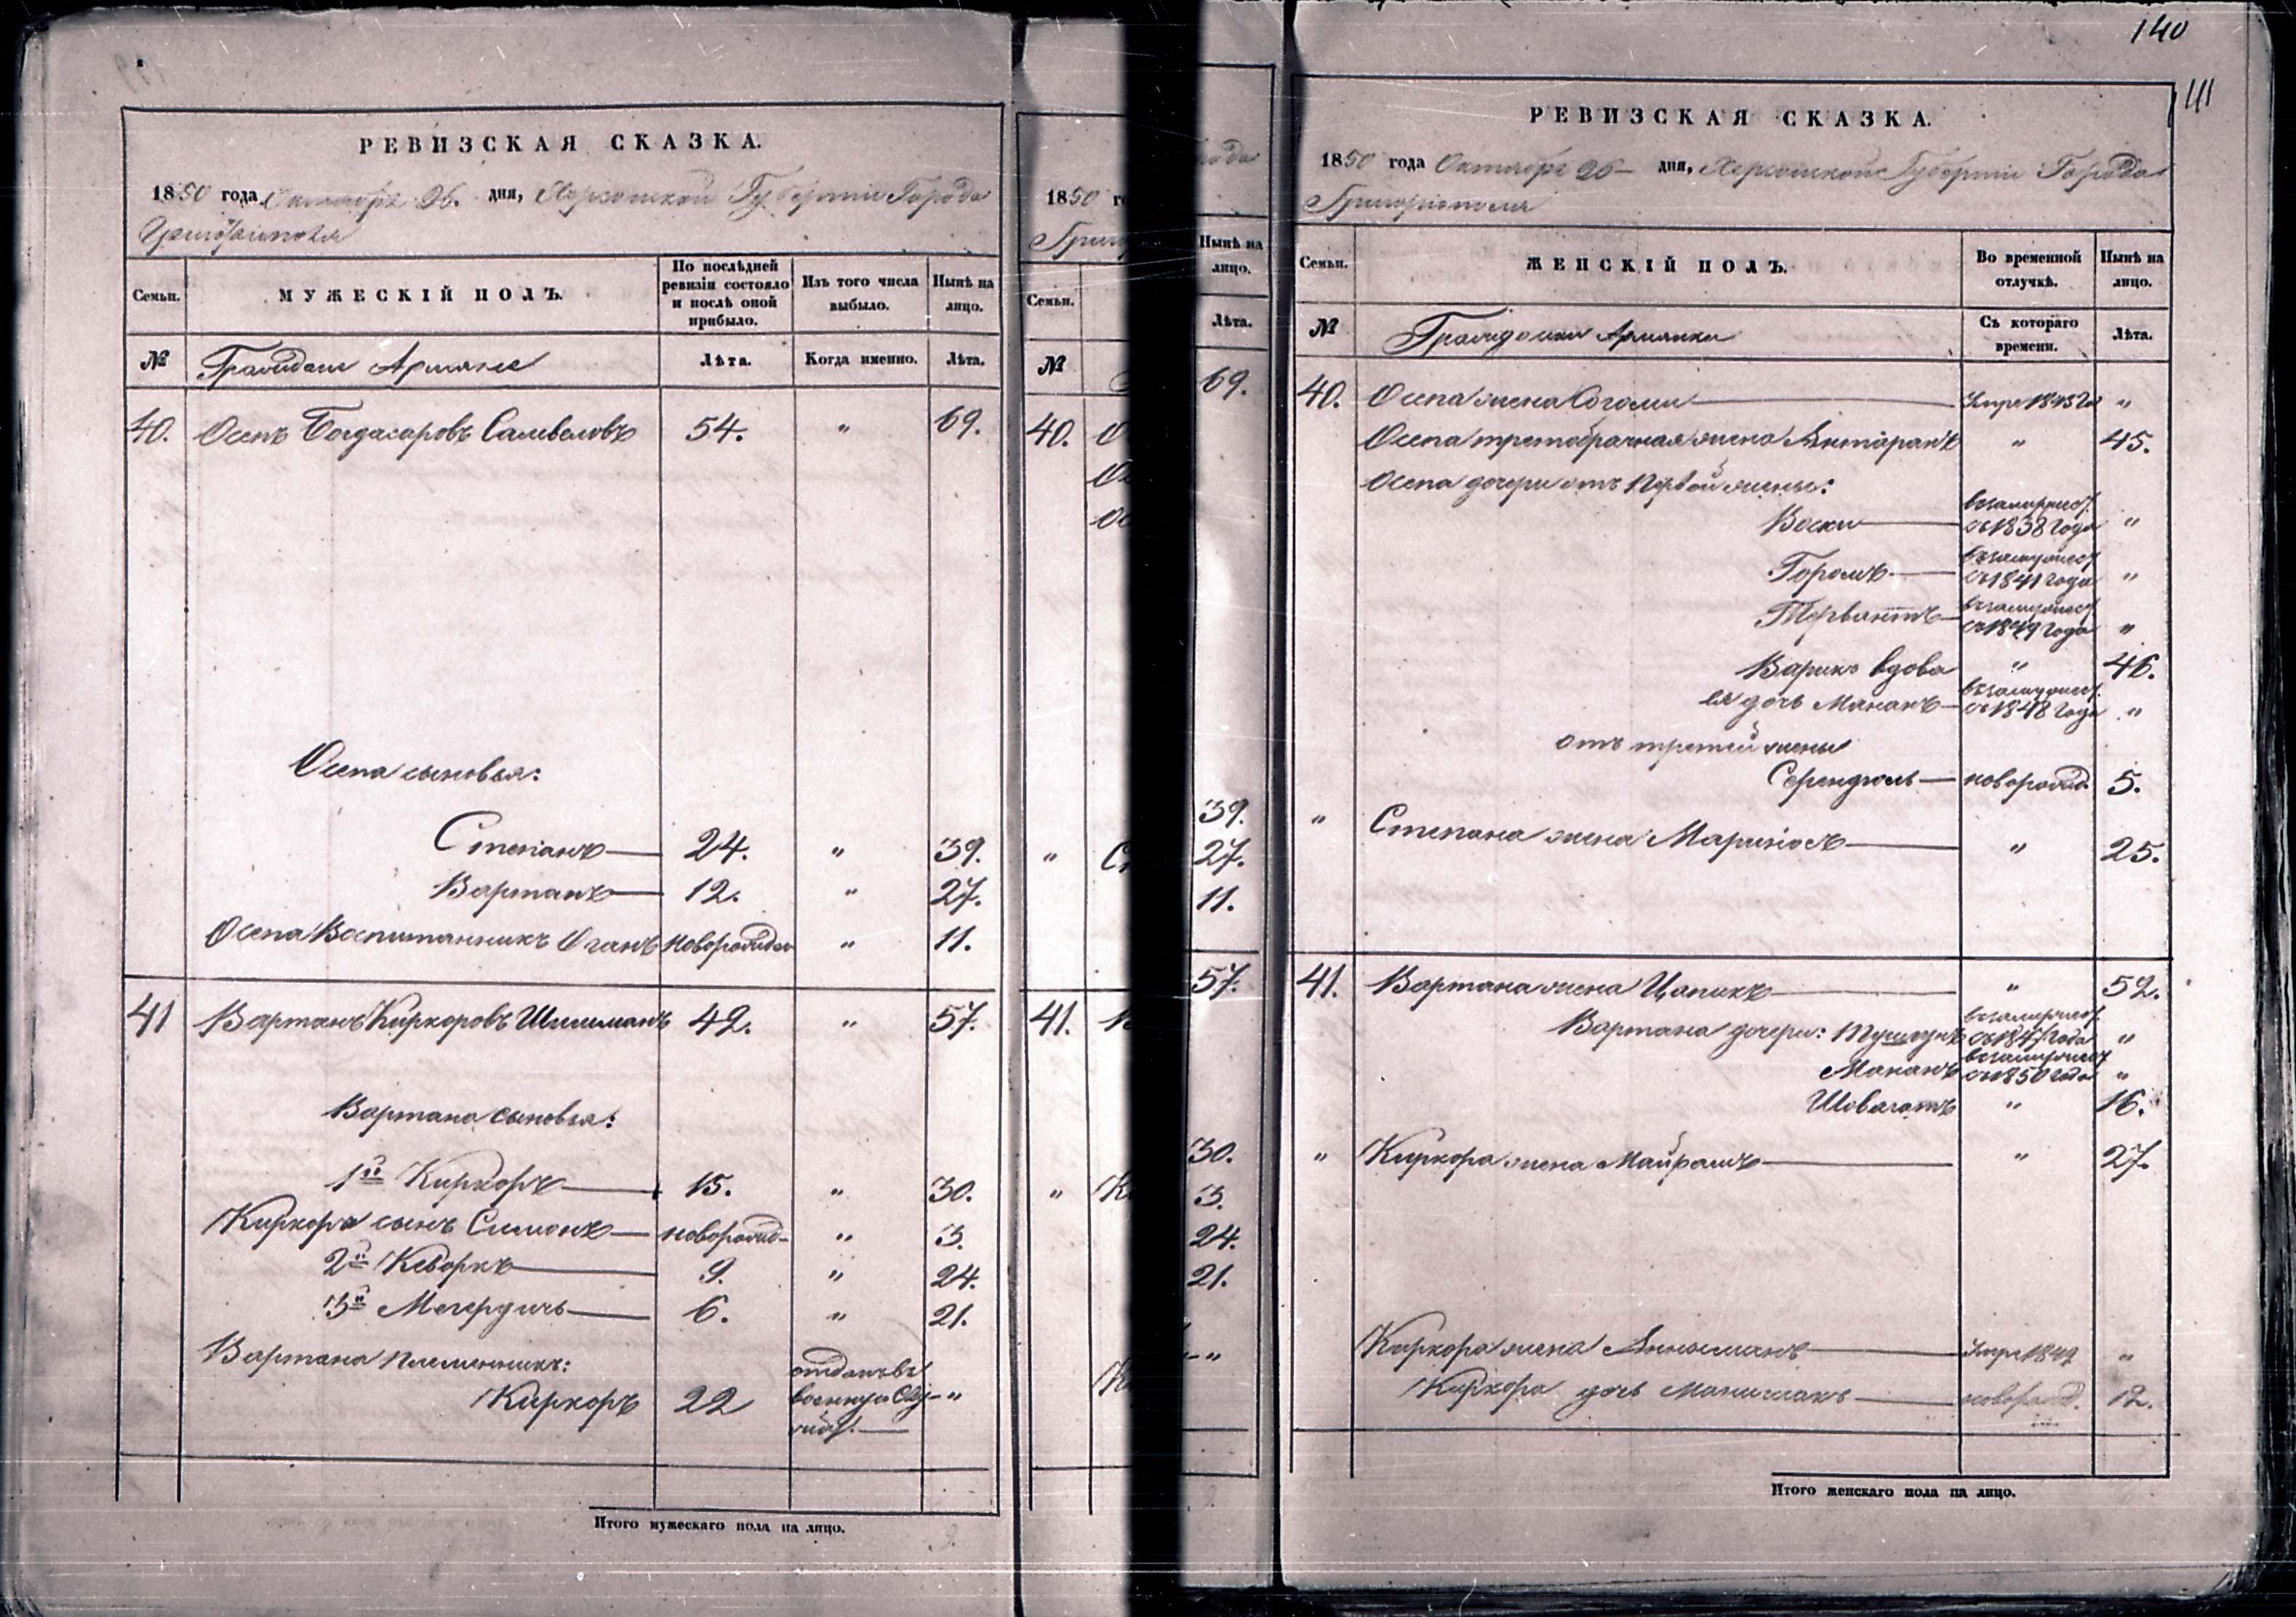 РЕВИЗСКАЯ СКАЗКА.
1850 года Октября 26 дня, Херсонской Губерніи Города
Григоріополя
Семьи.
МУЖЕСКІЙ ПОЛЪ.
По послѣдней ревизіи состояло и послѣ оной прибыло.
Изъ того числа выбыло.
Нынѣ на лицо.
№ Граждане Армяне Лѣта. Когда именно. Лѣта.
40. Осепъ Богдасаровъ 54. " 69.
Осепа сыновья:
Степанъ 24. " 39.
Вартанъ 12. " 27.
Осепа Воспитанникъ Оганъ новорожден " 11.
41 Вартанъ Киркоровъ Шишманъ 42. " 57.
Вартана сыновья:
1й Киркоръ 15. " 30.
Киркора сынъ Симонъ новорожд " 3.
2й Кеворкъ 9. " 24.
3й Мегердичь 6. " 21.
Вартана племянникъ:
Киркоръ 22 отданъ въ военную "
Итого мужескаго пола на лицо.
1850 г
Григ
Семьи.
№
40. О
Ос
Ос
" Ст
41. В
" К
К
рода
Нынѣ на лицо.
Лѣта.
69.
39.
27.
11.
57.
30.
3.
24.
21.
"
140
141
РЕВИЗСКАЯ СКАЗКА.
1850 года Октября 26 дня, Херсонской Губерніи Города
Григоріополя
Семьи.
ЖЕНСКІЙ ПОЛЪ.
Во временной отлучкѣ.
Нынѣ на лицо.
№ Гражданки Армянки Съ котораго времени. Лѣта.
40. Осепа жена Согоми "
Осепа третобрачная жена 45.
Осепа дочери отъ первой жены:
Воски въ замужест. съ 1838 года "
Горомъ въ замужест. съ 1841 года "
Тервантъ въ замужест. съ 1849 года "
Варикъ вдова " 46.
ея дочь Мананъ въ замужест. съ 1848 года "
отъ третей жены
новорожд. 5.
" Степана жена " 25.
41. Вартана жена Цапикъ " 52.
Вартана дочери: въ замужест. съ 1847 года "
Мананъ въ замужест. съ 1850 года "
Шовагатъ " 16.
" Киркора жена Майрамъ " 27.
Киркора жена "
Киркора дочь новорожд. 12.
Итого женскаго пола на лицо.